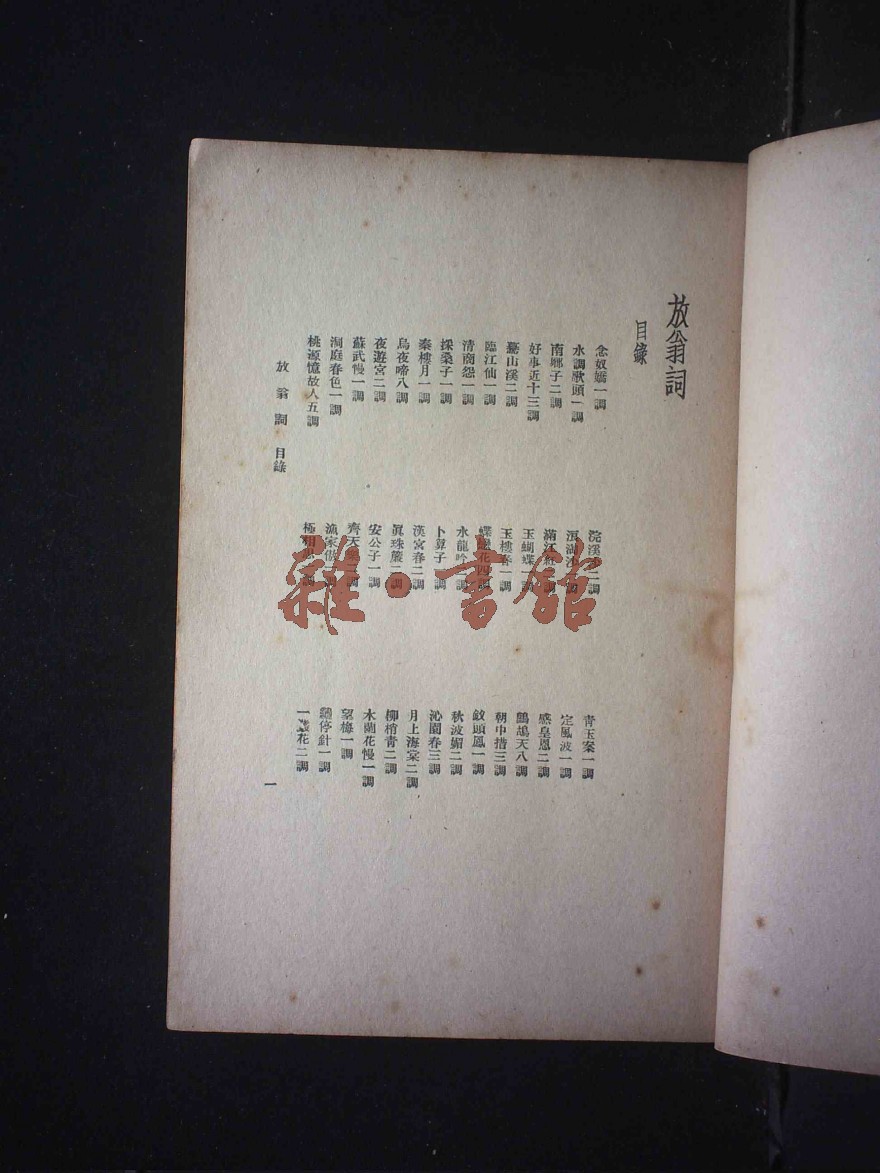 放翁詞
目錄
念奴嬌一調
水調歌頭一調
南鄉子二調
好事近十三調
驀山溪二調
臨江仙一調
清商怨一調
採桑子一調
秦樓月一調
烏夜啼八調
夜遊宮二調
蘇武慢一調
洞庭春色一調
桃源憶故人五調
浣溪沙二調
浪淘沙一調
滿江紅 調
玉蝴蝶一調
玉樓春一調
蝶戀花四調
水龍吟 調
卜算子一調
漢宮春二調
真珠簾一調
安公子一調
齊天樂二調
漁家傲一調
極相思一調
青玉案一調
定風波一調
感皇恩二調
鷓鴣天八調
朝中措三調
釵頭鳳一調
秋波媚二調
沁園春三調
月上海棠二調
柳梢青二調
木蘭花慢一調
望梅一調
繡停針一調
一叢花二調
放翁詞 目錄
一
雜·書館